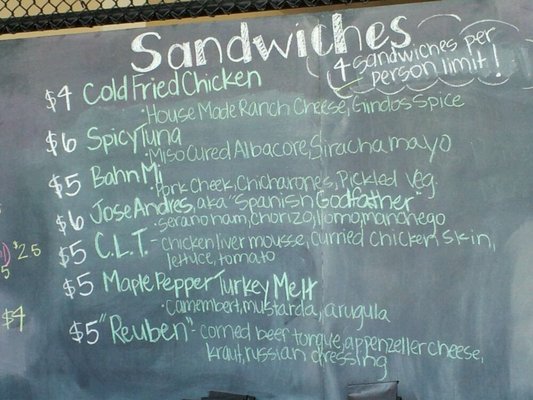 Sandwiches
4 sandwiches per
person limit!
$4 Cold Fried Chicken
• House Made Ranch Cheese, Gindos Spice
$6 Spicy Tuna
• Miso Cured Albacore, Siracha mayo
$5 Bahn Mi
• Pork Cheek, Chicharones, Pickled Veg.
$6 Jose Andres, aka "Spanish Godfather"
• serano ham, chorizo, llomo, manchego
$5 C.L.T. - chicken liver mousse, curried chicken, skin,
lettuce, tomato
$5 Maple Pepper Turkey Melt
• camembert, mustarda, arugula
$5 "Reuben" - corned beef tongue, appenzeller cheese,
kraut, russian dressing
$2.5
5
$4